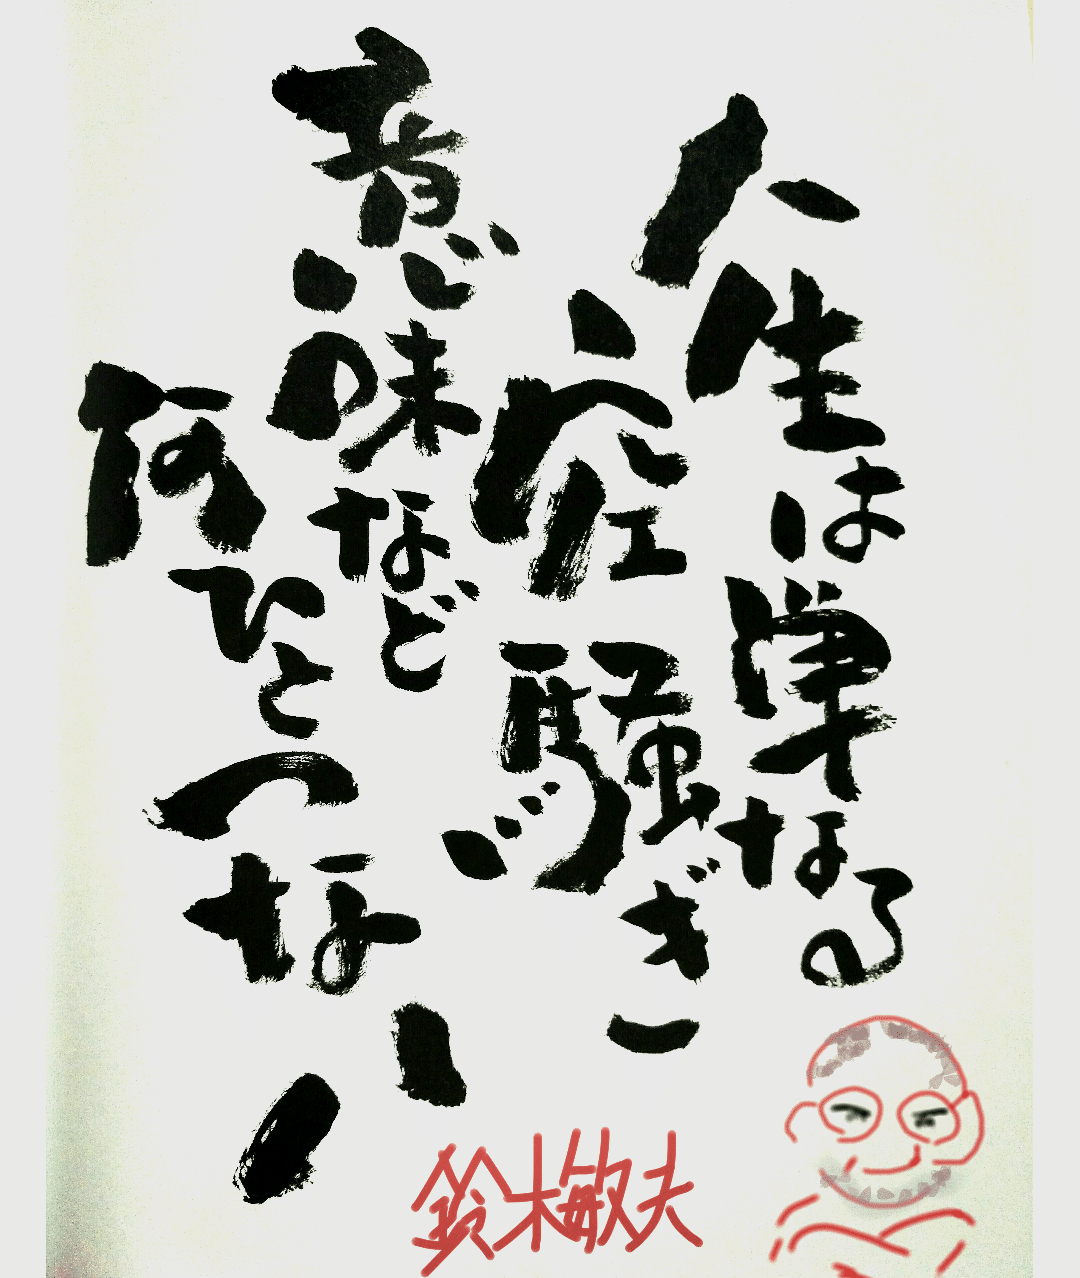 人生は単なる
空騒ぎ一
意味など
何ひとつない
鈴木敏夫